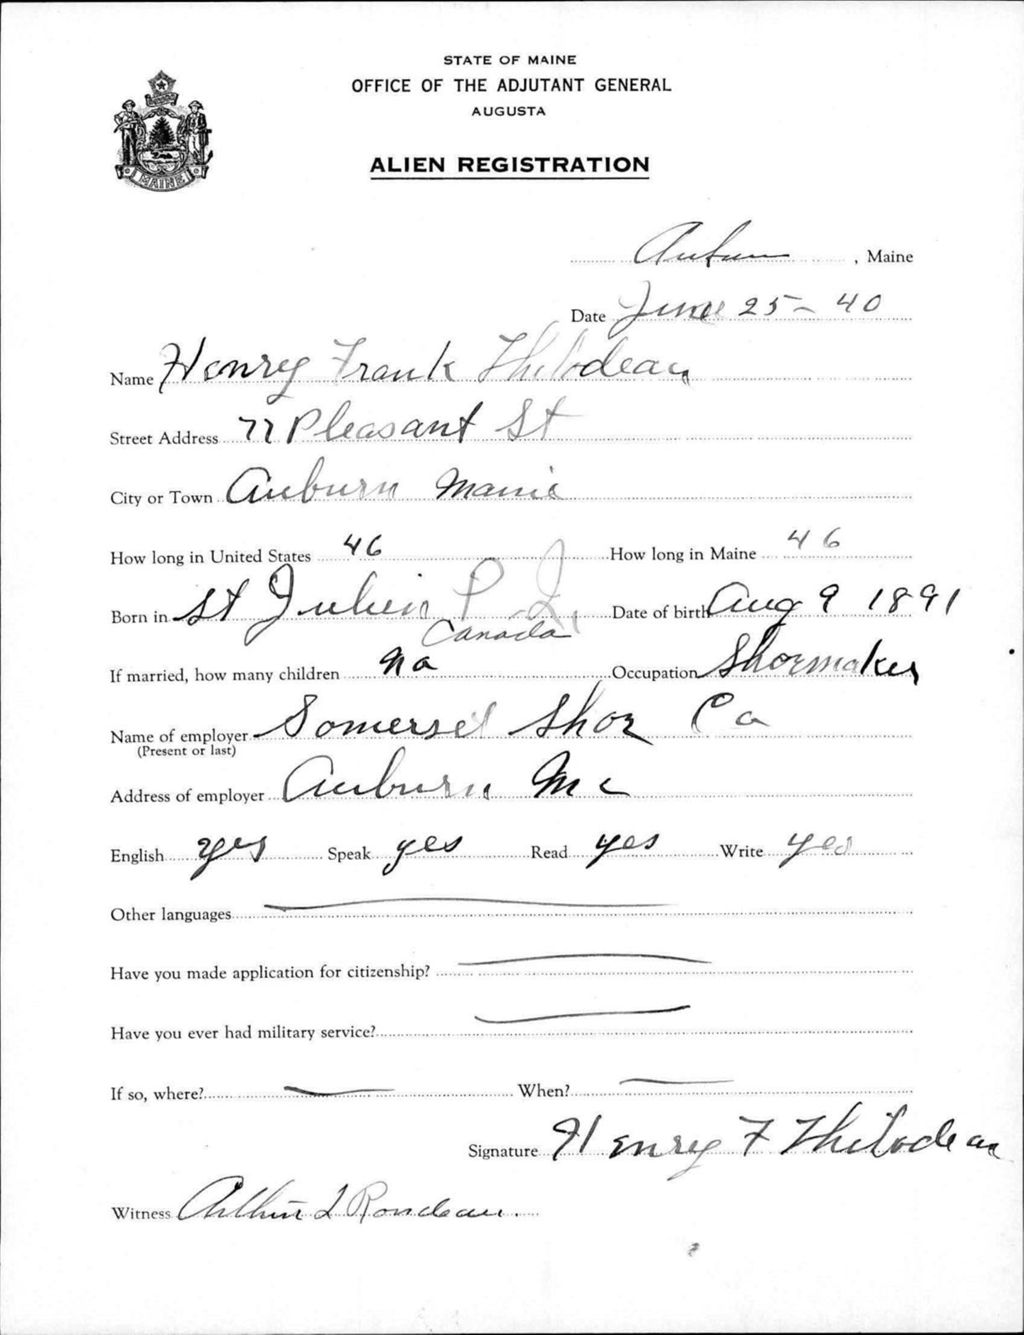 STATE OF MAINE
OFFICE OF THE ADJUTANT GENERAL
AUGUSTA
MAINE
ALIEN REGISTRATION
Auburn, Maine
Date June 25-40
Name Henry Frank Thibodeau
Street Address 77 Pleasant St
City or Town Auburn Maine
How long in United States 46 How long in Maine 46
Born in St Julien P. Q. Date of birth Aug 9 1891
Canada
If married, how many children no Occupation Shoemaker
Name of employer Somerset Shoe Co
(Present or last)
Address of employer Auburn Me
English yes Speak yes Read yes Write yes
Other languages
Have you made application for citizenship?
Have you ever had military service?
If so, where? When?
Signature Henry F Thibodeau
Witness Arthur L Rondeau.